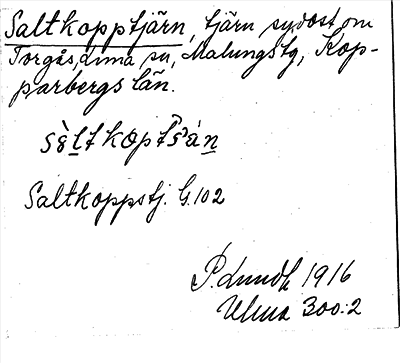 Saltkopptjärn, tjärn sydost om
Torgås, Lima sn, Malungs tg, Kop-
parbergs län.
sàltkoptsàn
Saltkoppstj. G.102
P. Lundh 1916
Ulma 300:2